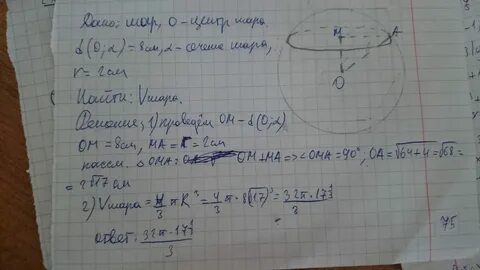 Дано: шар, O - центр шара.
d(O;α) = 8см, α - сечение шара,
r = 2см
M
A
O
Найти: Vшара.
Решение: 1) проведём OM - d(O;α)
OM = 8см, MA = r = 2см
рассм. △OMA: OM⊥MA => ∠OMA = 90°, OA = √64+4 = √68 =
= 2√17 см
2) Vшара = 4/3 πR³ = 4/3 π · 8√17)³ = 32π·17
3
ответ: 32π·17
3
75